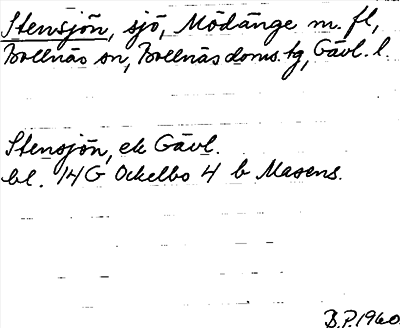 Stensjön, sjö, Mödänge m. fl,
Bollnäs sn, Bollnäs doms. tg, Gävl. l.
Stensjön, ek Gävl.
bl. 14G Ockelbo 4 b Masens.
B.P. 1960